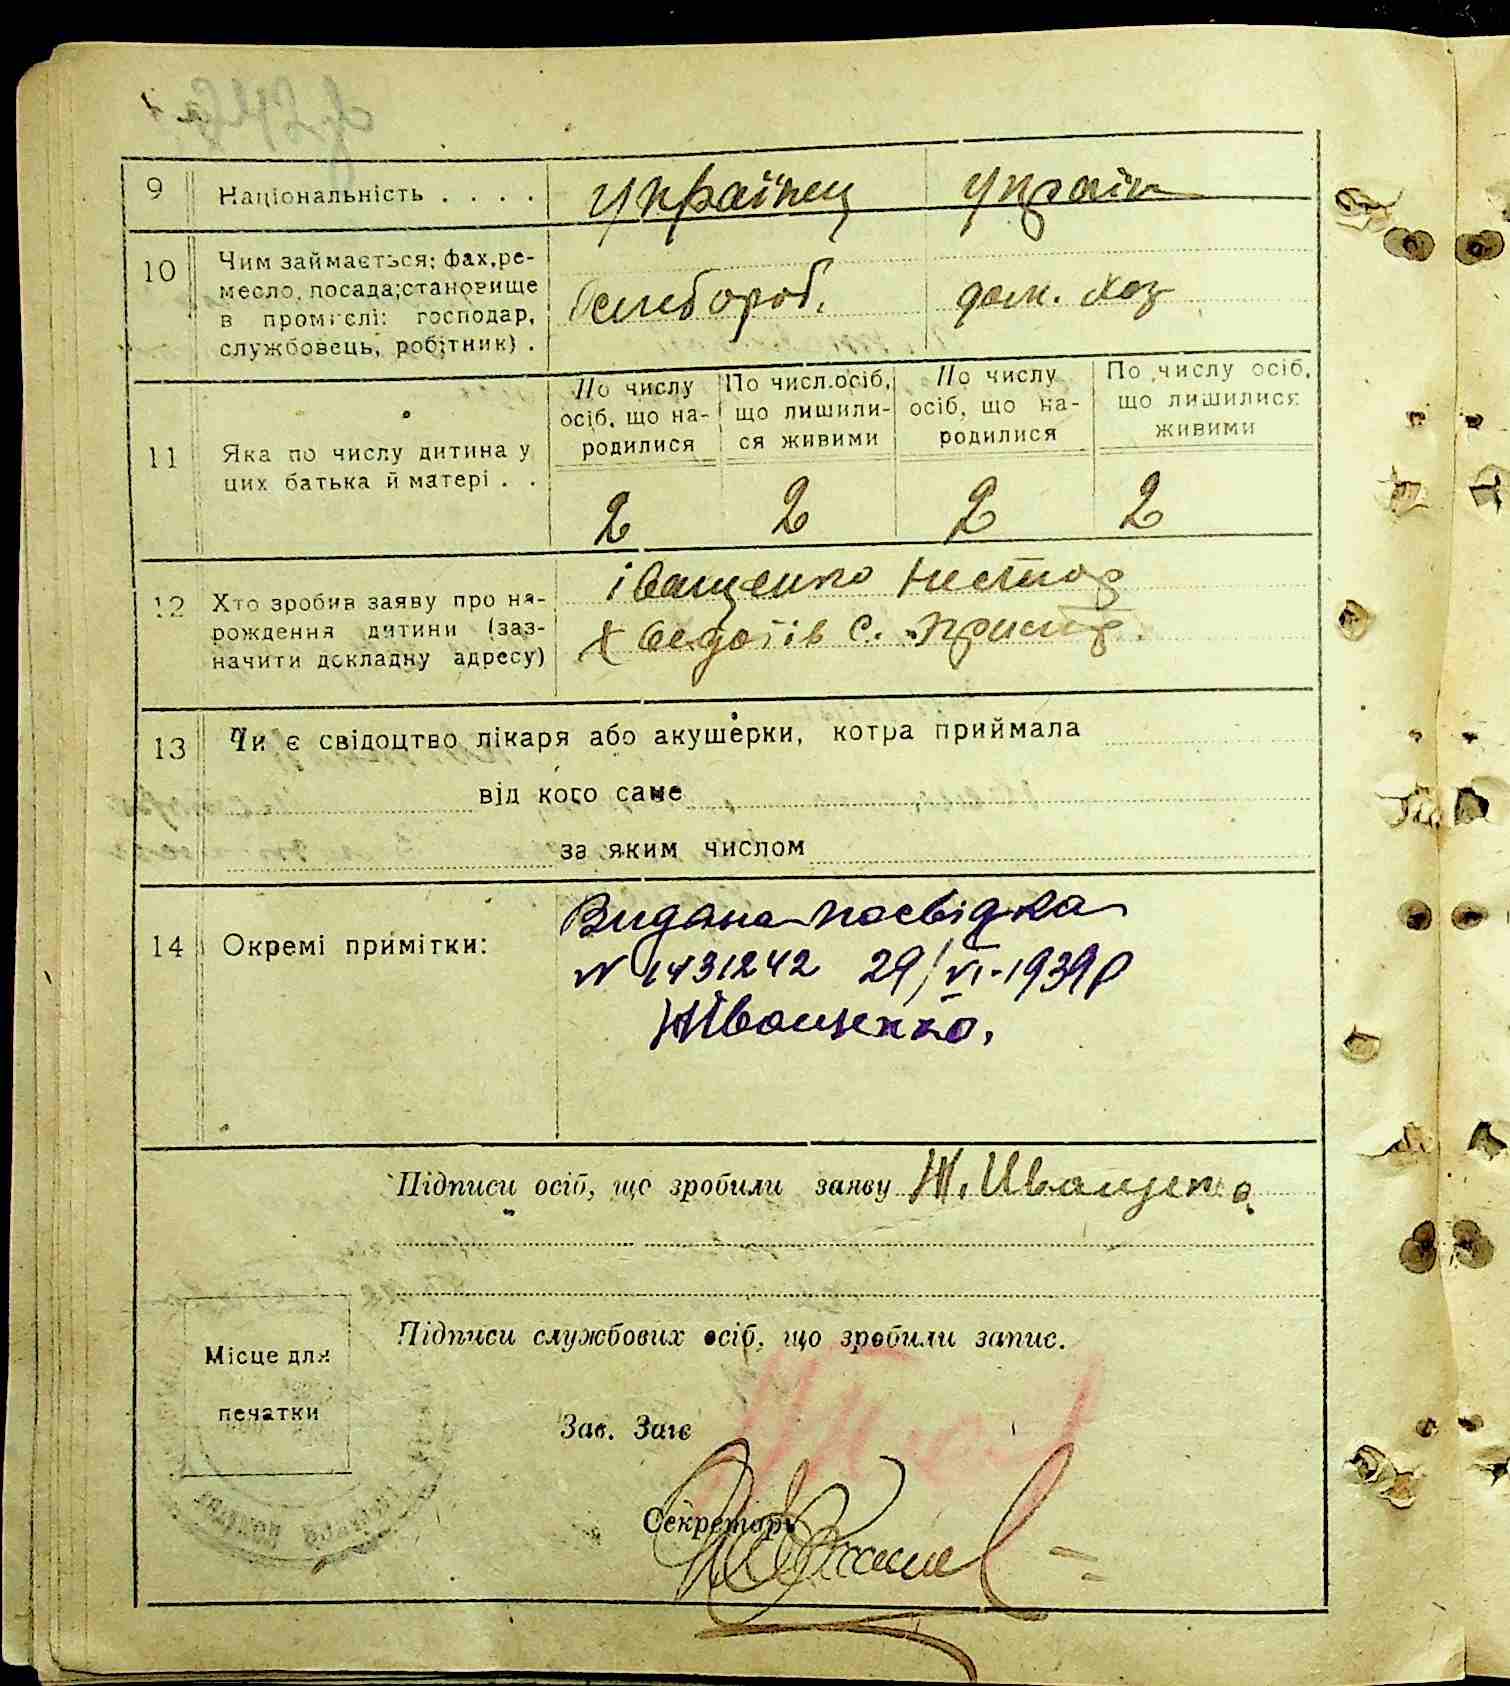 9 Національність . . . . українец україн
10 Чим займається: фах, ре-
месло, посада; становище
в промислі: господар,
службовець, робітник) .
хлебороб. дом. хоз
11 Яка по числу дитина у
цих батька й матері . .
По числу осіб, що на-родилися
По числ. осіб, що лишили-ся живими
По числу осіб, що на-родилися
По числу осіб, що лишилися живими
2 2 2 2
12 Хто зробив заяву про на-
рождення дитини (заз-
начити докладну адресу)
іващенко Нестор
Хведотів с.
13 Чи є свідоцтво лікаря або акушерки, котра приймала
від кого саме
за яким числом
14 Окремі примітки:
Видана посвідка
N 1431242 29/VI-1939р
НІващенко.
Підписи осіб, що зробили заяву Н. Иващенко
Підписи службових осіб, що зробили запис.
Місце для
печатки
Зав. Загс
Секретарь